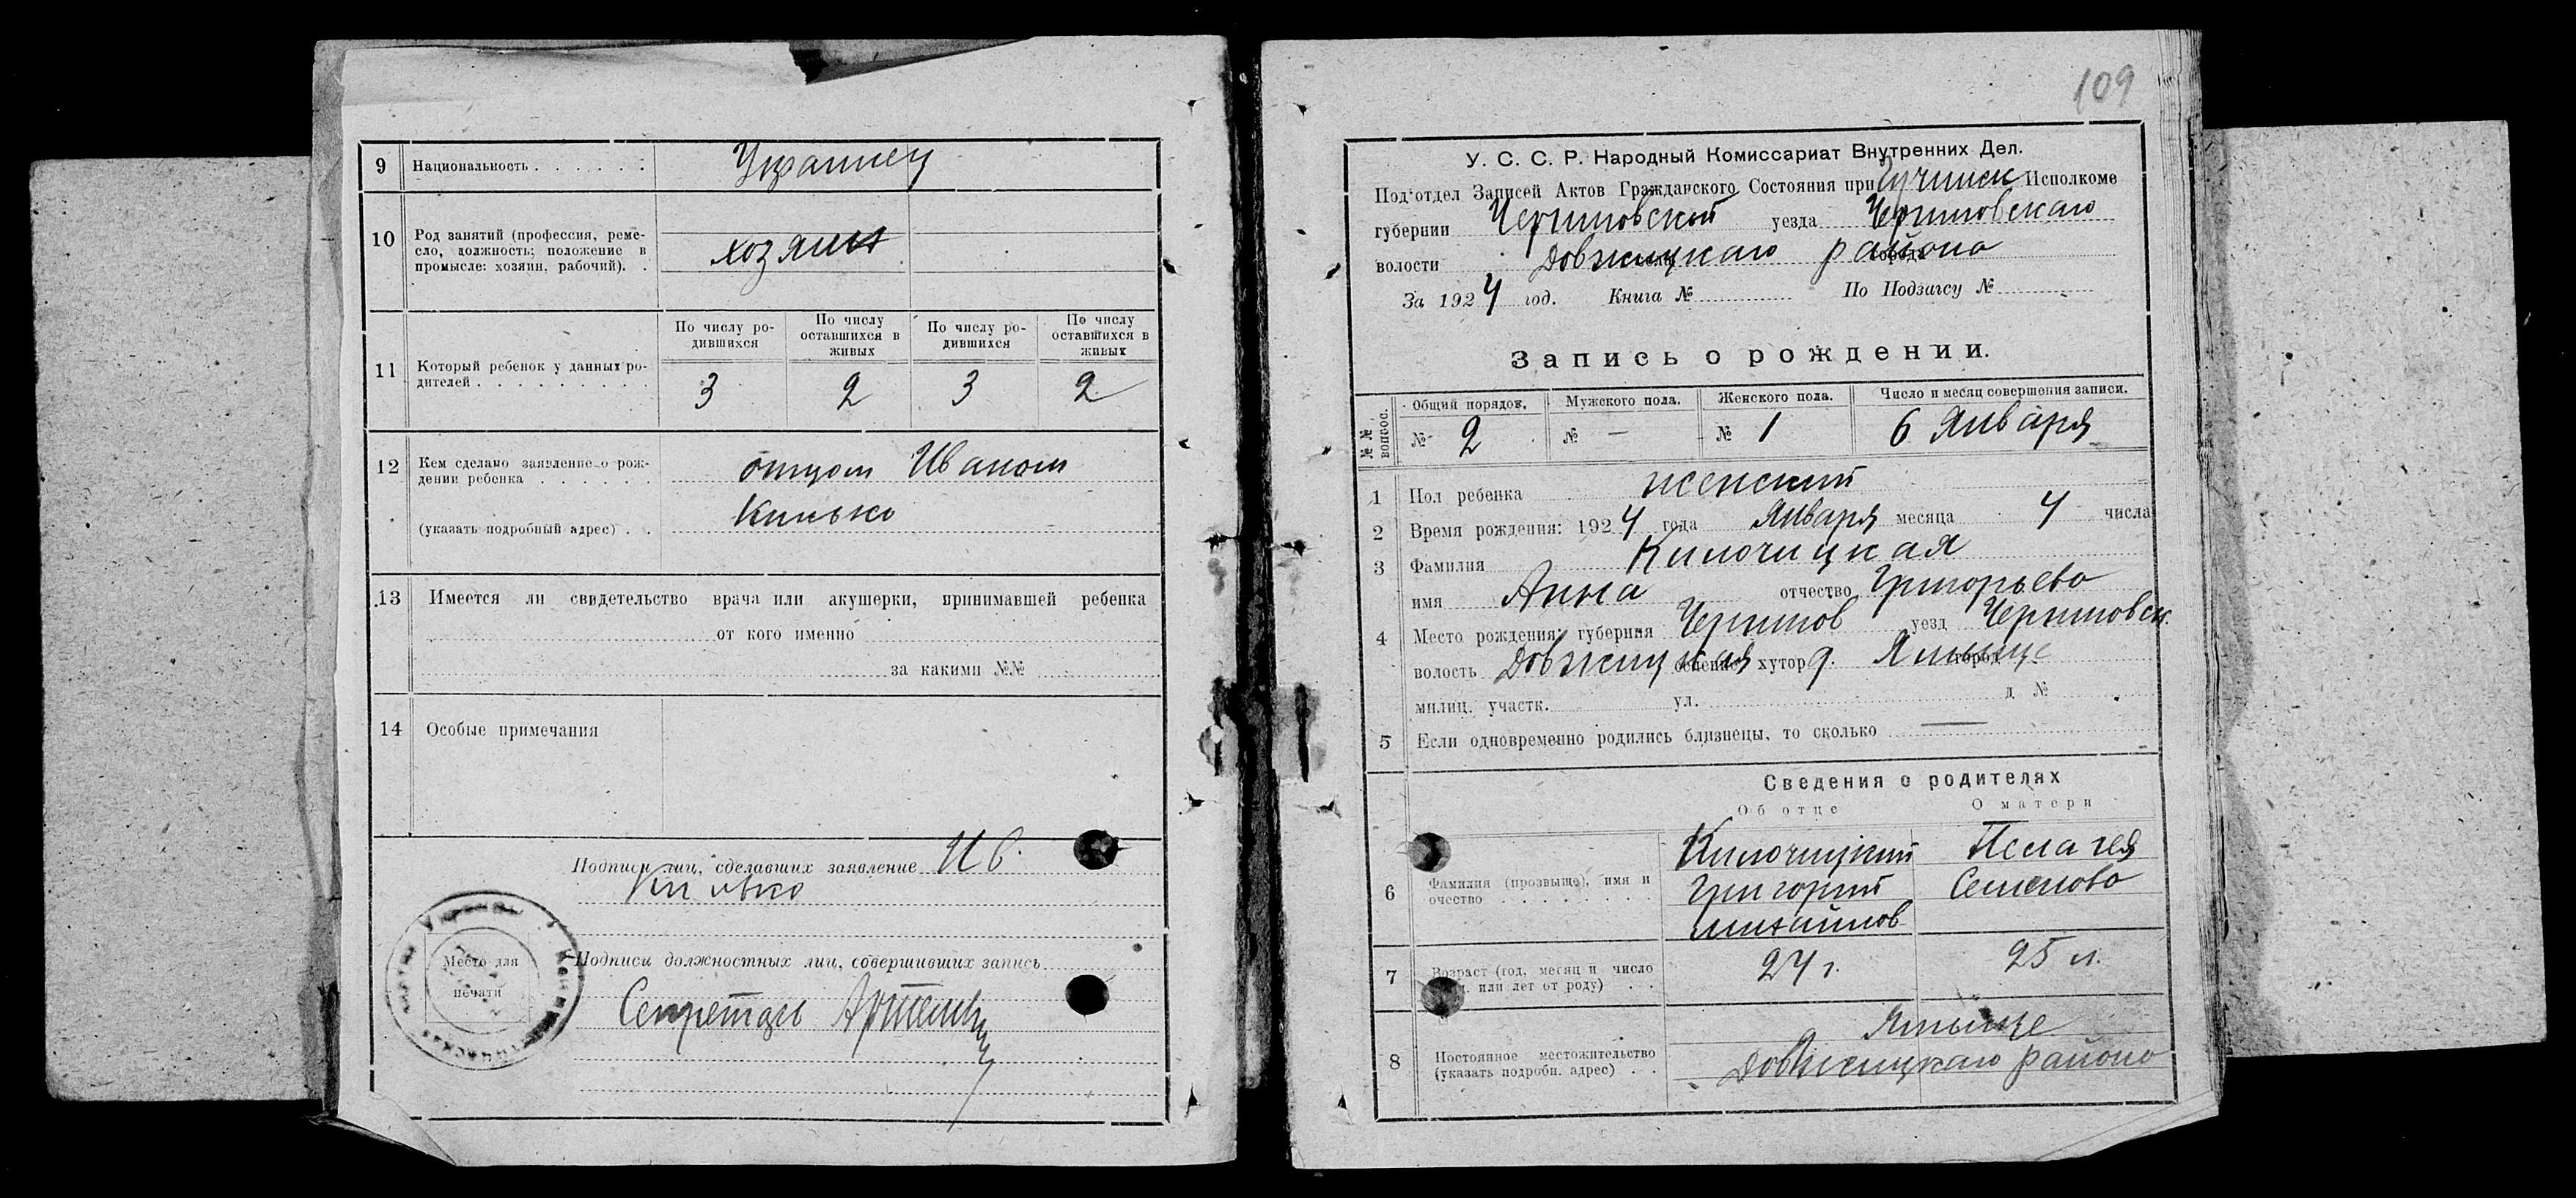 9 Национальность . . . . . . Украинец
10 Род занятий (профессия, реме-
сло, должность, положение в
промысле: хозяин, рабочий). . хозяин
По числу ро-
дившихся
По числу
оставшихся в
живых
По числу ро-
дившихся
По числу
оставшихся в
живых
11 Который ребенок у данных ро-
дителей . . . . . . . . .
3 2 3 2
12 Кем сделано заявление о рож-
дении ребенка . . . . . . отцом Иваном
Кинько
(указать подробный адрес) . .
13 Имеется ли свидетельство врача или акушерки, принимавшей ребенка
от кого именно
за какими №№
14 Особые примечания
Подписи лиц, сделавших заявление Ив.
Кинько
Место для
печати
Подписи должностных лиц, совершивших запись
Секретарь
109
У. С. С. Р. Народный Комиссариат Внутренних Дел.
Под'отдел Записей Актов Гражданского Состояния при Исполкоме
губернии Черниговской уезда Черниговскаго
волости Довжицкаго района
За 1924 год. Книга № По Подзагсу №
Запись о рождении.
№ № вопрос.
Общий порядов. Мужского пола. Женского пола. Число и месяц совершения записи.
№ 2 № — № 1 6 Января
1 Пол ребенка женский
2 Время рождения: 1924 года Января месяца 4 числа
3 Фамилия Килочицкая
имя Анна отчество Григорьева
4 Место рождения: губерния Чернигов уезд Черниговск.
волость Довжицкая хутор д. Янище
милиц. участк. ул. д №
5 Если одновременно родились близнецы, то сколько —
Сведения о родителях
Об отце О матери
6 Фамилия (прозвище), имя и
очество . . . . . . . . .
Килочицкий
Григорий
Михайлов
Пелагея
Семенова
7 Возраст (год, месяц и число
или лет от роду) . . 24 г. 25 л.
8 Постоянное местожительство
(указать подробн. адрес) . .
Янище
Довжицкаго района